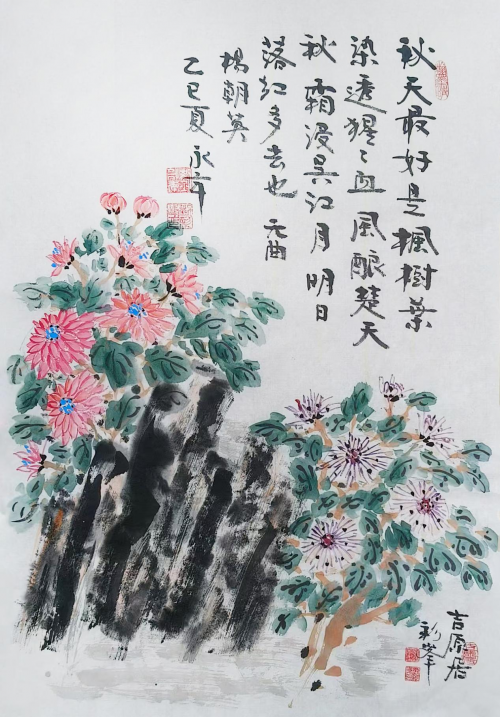 秋天最好是楓樹葉
染透猩〻血風釀楚天
秋霜浸吳江月明日
落红多去也 元曲
楊朝英
乙巳夏永年
吉原居
彩峯